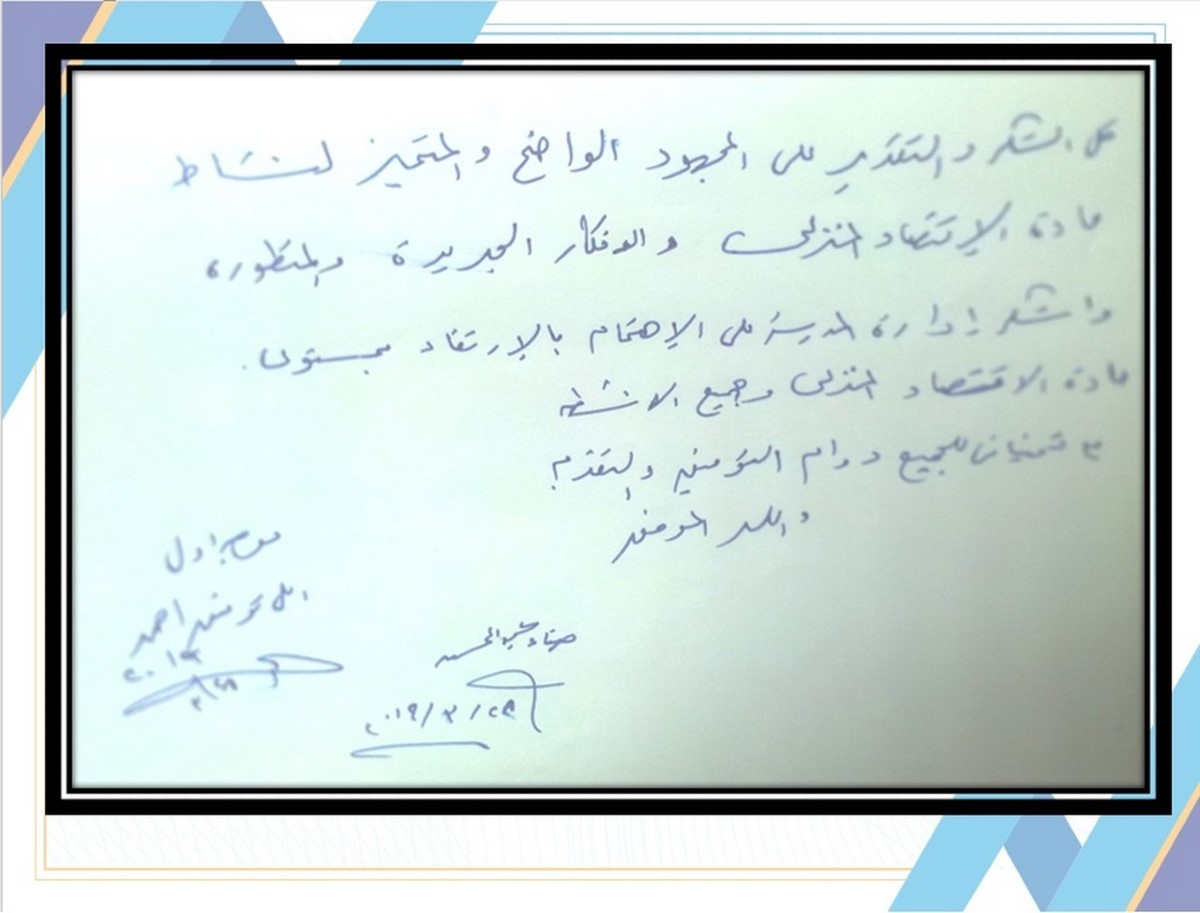 كل الشكر والتقدير على المجهود الواضح والمتميز لنشاط
مادة الإقتصاد المنزلى والافكار الجديدة والمتطورة
واشكر إدارة المدرسة على الإهتمام بالإرتقاء بمستوى
مادة الاقتصاد المنزلى وجميع الانشطه
مع تمنياتى للجميع دوام التوفيق والتقدم
والله الموفق
موجه اول
امل توفيق احمد
صفاء عبد المحسن
٢٠١٩
٣/٢٨
٢٠١٩/٣/٢٨